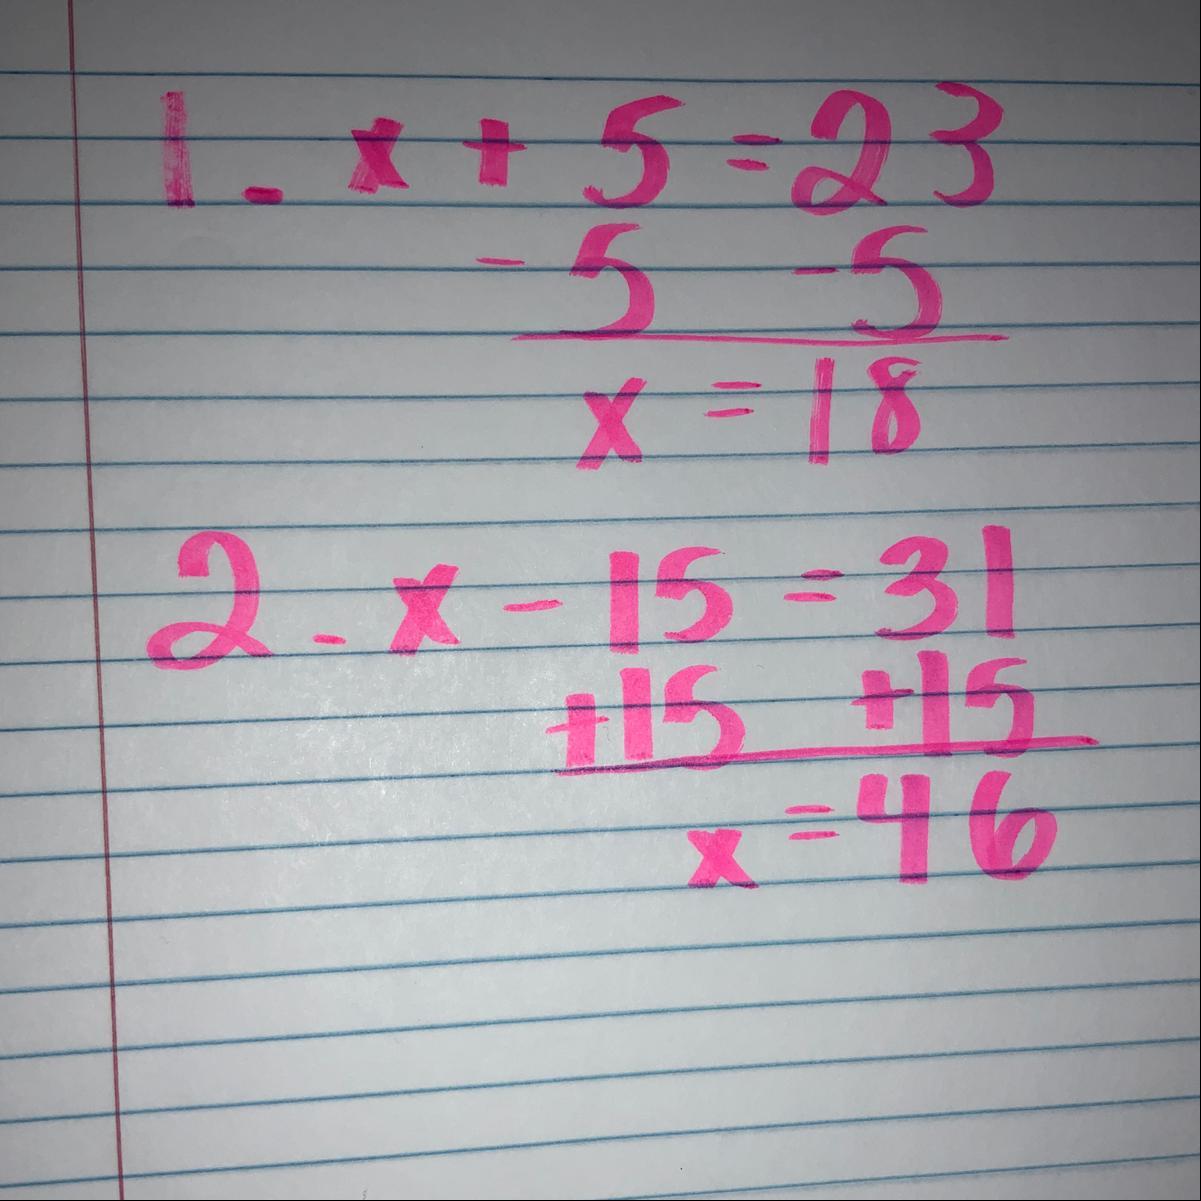 1. x + 5 = 23
- 5 - 5
x = 18
2. x - 15 = 31
+15 +15
x = 46